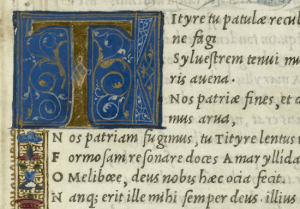 T ityre tu patulæ recu
ne fagi
Syluestrem tenui mu
ris auena.
Nos patriæ fines, et
mus arua,
N os patriam fugimus, tu Tityre lentu
F ormosam resonare doces Amaryllida
O Melibœe, deus nobis hæc ocia fecit.
N anq; erit ille mihi semper deus. illius